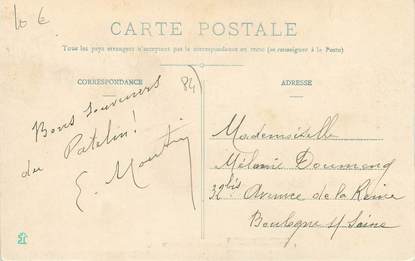 10 €
CARTE POSTALE
Tous les pays étrangers n'acceptent pas la correspondance au recto (se renseigner à la Poste)
CORRESPONDANCE
84
Bons souvenirs
du Patelin!
E.
ADRESSE
Mademoiselle
Mélanie Doumeng
32bis Avenue de la Reine
Boulogne s/ Seine